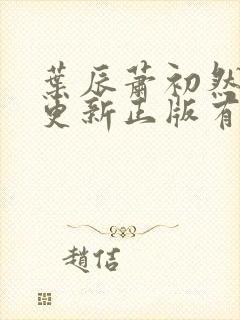 葉辰蕭初然
更新正版有
趙佶